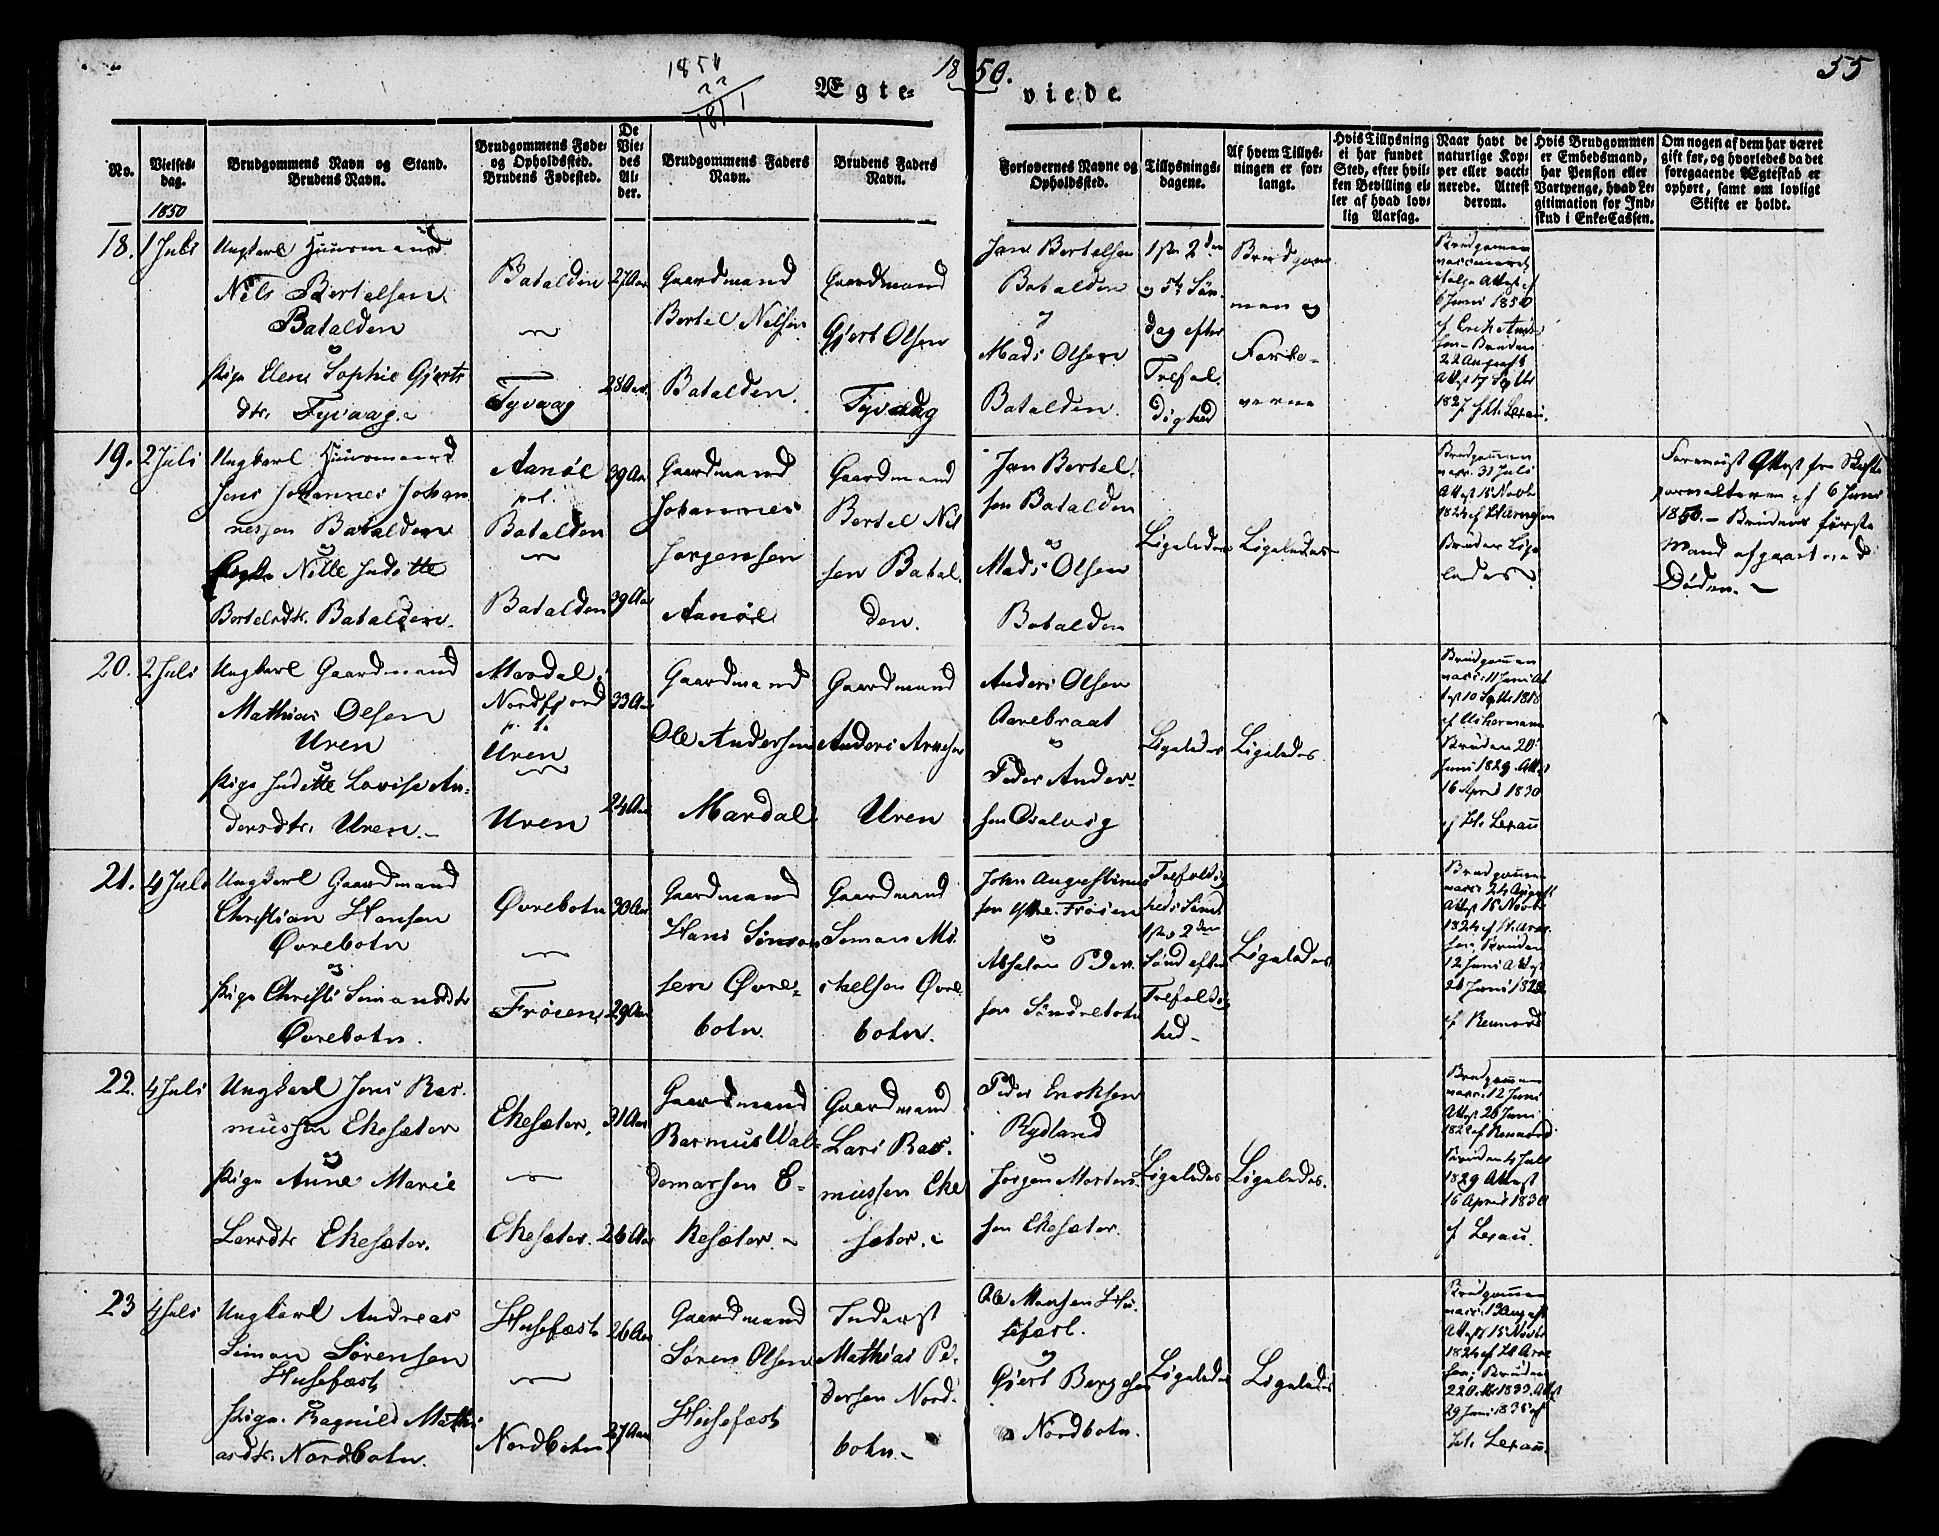 1850
22
Ægte=
1850.
viede.
55
No.
Vielses-
dag.
1850
Brudgommens Navn og Stand.
Brudens Navn.
Brudgommens Føde-
og Opholdssted.
Brudens Fødested.
De
Vie-
des
Al-
der.
Brudgommens Faders
Navn.
Brudens Faders
Navn.
Forlovernes Navne og
Opholdssted.
Tillysnings-
dagene.
Af hvem Tillys-
ningen er for-
langt.
Hvis Tillysning
ei har fundet
Sted, efter hvil-
ken Bevilling el-
ler af hvad lov-
lig Aarsag.
Naar havt de
naturlige Kop-
per eller vacci-
nerede. Attest
derom.
Hvis Brudgommen
er Embedsmand,
har Pension eller
Vartpenge, hvad Le-
gitimation for Ind-
skud i Enke-Cassen.
Om nogen af dem har været
gift før, og hvorledes da det
foregaaende Ægteskab er
ophørt, samt om lovligt
Skifte er holdt.
18.
1 Juli
Ungkarl Huusmand
Nils Bertelsen
Batalden
og
Pige Elen Sophie Gjerts
dtr. Tyvaag.
Batalden
Tyvaag
27 Aar
28 Aar
Gaardmand
Bertel Nilsen
Batalden.
Gaardmand
Gjert Olsen
Tyvaag
Jan Bertelsen
Batalden
og
Mads Olsen
Batalden.
1ste 2den
og 5te Søn-
dag efter
Trefol-
dighed
Brudgom
men og
Forlo-
verne
Brudgomen
vaccineret
ifølge Attest af
6 Juni 1850
Bruden
22 August
Attest 17 Septbr
1827 f Lt. Lexau.
19.
2 Juli
Ungkarl Huusmand
Jens Johannes Johan
nessen Batalden
og
Enke Nille Juditte
Bertelsdtr. Batalden.
Aanøe
p.t.
Batalden
Batalden
39 Aar
39 Aar
Gaardmand
Johannes
Jørgensen
Aanøe
Gaardmand
Bertel Nil
sen Batal
den.
Jan Bertel
sen Batalden
og
Mads Olsen
Batalden
Ligeledes
Ligeledes
Brudgomen
vacc. 31 Juli
Attest 15 Novbr
1824 af Lt Arnesen
Bruden Lige
ledes
Foreviist Attest fra Skifte
forvalteren af 6 Juni
1850. – Brudens første
Mand afgaaet ved
Døden. –
20.
2 Juli
Ungkarl Gaardmand
Mathias Olsen
Uren
og
Pige Juditte Lovise An-
dersdtr. Uren. –
Mardal i
Nordfjord
p. t.
Uren
Uren
33 Aar
24 Aar
Gaardmand
Ole Andersen
Mardal
Gaardmand
Anders Arnesen
Uren
Anders Olsen
Aarebraat
og
Peder Ander-
sen Oselvig
Ligeledes
Ligeledes.
Brudgomen
vacc. 11 Juni At
test 10 Septbr 1818
Bruden 20
Juni 1829. Attest
16 April 1830
af Lt. Lexau
21.
4 Juli
Ungkarl Gaardmand
Christian Hansen
Øvrebotn
og
Pige Christi Simonsdtr
Øvrebotn.
Øvrebotn
Frøien
30 Aar
29 Aar
Gaardmand
Hans Simon
sen Øvre-
botn.
Gaardmand
Simon Mi
chelsen Øvre
botn.
John Augustinus
sen Ytre Frøien
og
Absalon Peder
sen Søndrebotn
Trefoldig
heds Sønd.
1ste 2den
Sønd efter
Trefoldig
hed –
Ligeledes
Brudgomen
vacc. 24 August
Attest 15 Novbr
1824 af Lt. Arne
sen, Bruden
12 Juni Attest
26 Juni 1822
22.
4 Juli
Ungkarl Jens Ras
mussen Ekesæter
og
Pige Anne Marie
Larsdtr Ekesæter.
Ekesæter.
Ekesæter.
31 Aar
26 Aar
Gaardmand
Rasmus Wal-
demarsen E-
kesæter. –
Gaardmand
Lars Ras
mussen Eke
sæter. –
Peder Eriksen
Rydland
og
Jørgen Mortens
sen Ekesæter.
Ligeledes
Ligeledes.
Brudgomen
vacc. 12 Juni
Attest 26 Juni
Bruden 4 Juli
1829 Attest
16 April 1830
af Lexau.
23
4 Juli
Ungkarl Andreas
Simon Sørensen
Husefæst
og
Pige Ragnild Mathi
asdtr. Nordbotn.
Husefæst
Nordbotn
26 Aar
27 Aar
Gaardmand
Søren Olsen
Husefæst
Inderst
Mathias Pe-
dersen Nord-
botn. –
Ole Monsen Hu
sefæst.
og
Gjert Bergesen
Nordbotn.
Ligeledes
Ligeledes
Brudgomen
vacc. 13 August
Attest 15 Novbr
1824 af Lt Arne
sen; Bruden
29 Juni 1835 af
Lt. Lexau.